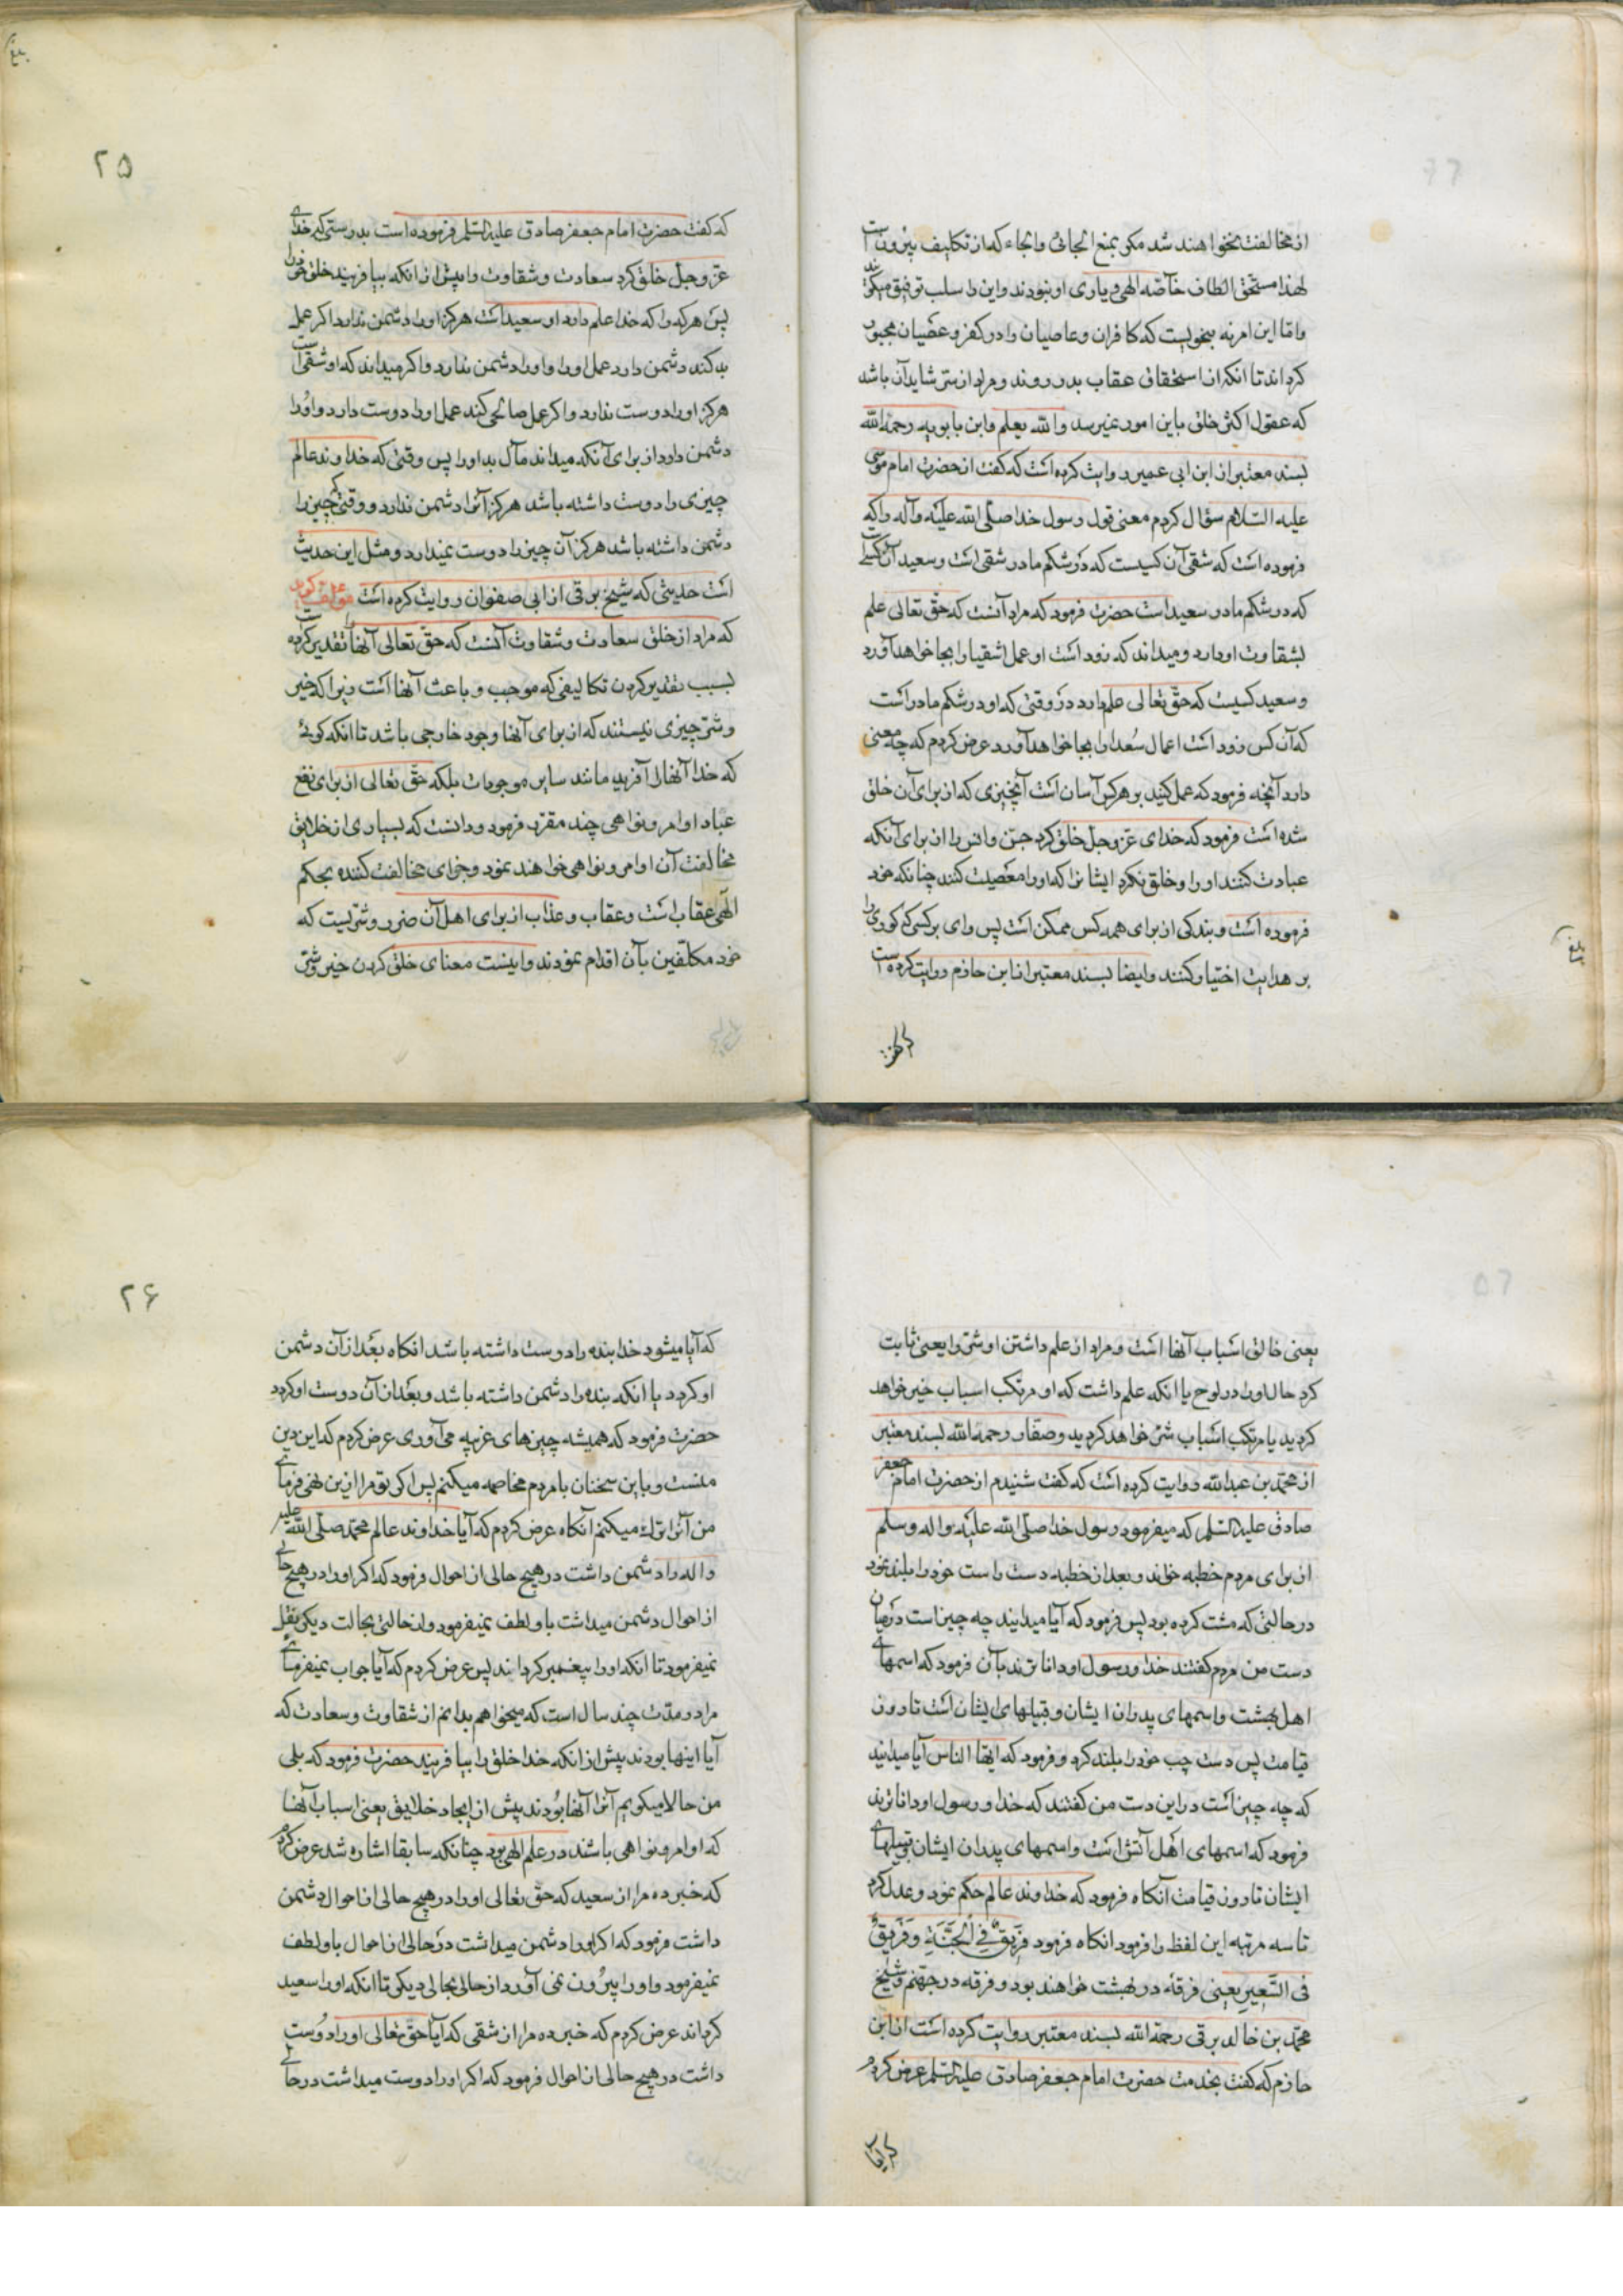 از مخالفت نخواهند شد مگر بمنع الجائی والجاء که از تکالیف بیرون است
لهذا مستحق الطاف خاصّه الهی و یاری او نبودند و این را سلب توفیق میگویند
و امّا این امر نه بنحویست که کافران و عاصیان را در کفر و عصیان مجبور
کرداند تا انکه از استحقاق عقاب بدر روند و مراد از سرّ شاید آن باشد
که عقول اکثر خلق باین امور نمیرسد والله یعلم و ابن بابویه رحمه الله
بسند معتبر از ابن ابی عمیر روایت کرده است که گفت از حضرت امام موسی
علیه السّلام سؤال کردم معنی قول رسول خدا صلّی الله علیه وآله را که
فرموده است که شقی آن کسیست که در شکم مادر شقی است و سعید آن کسی است
که در شکم مادر سعید است حضرت فرمود که مراد آنست که حقّ تعالی علم
بشقاوت او دارد و میداند که زود است او عمل اشقیا را بجا خواهد آورد
و سعید کسیست که حقّ تعالی علم دارد در وقتی که او در شکم مادر است
که آن کس زود است اعمال سُعدا را بجا خواهد آورد عرض کردم که چه معنی
دارد آنچه فرمود که عمل کنید بر هر کس آسان است آنچیزی که از برای آن خلق
شده است فرمود که خدای عزّ وجلّ خلق کرد جنّ و انس را از برای آنکه
عبادت کنند او را و خلق نکرد ایشان را که او را معصیت کنند چنانکه خود
فرموده است و بندگی از برای همه کس ممکن است پس وای بر کسی که کوری را
بر هدایت اختیار کنند و ایضا بسند معتبر از ابن حازم روایت کرده است
که گفت
۲۵
که گفت حضرت امام جعفر صادق علیه السّلم فرموده است بدرستی که خدای
عزّ وجلّ خلق کرد سعادت و شقاوت را پیش از انکه بیافریند خلق خود را
پس هر که را که خدا علم دارد او سعید است هرکز او را دشمن ندارد اکر عمل
بد کند دشمن دارد عمل او را و او را دشمن ندارد و اکر میداند که او شقی است
هرکز او را دوست ندارد و اکر عمل صالحی کند عمل او را دوست دارد و او را
دشمن دارد از برای آنکه میداند مآل بد او را پس وقتی که خداوند عالم
چیزی را دوست داشته باشد هرکز آنرا دشمن ندارد و وقتی که چیزیرا
دشمن داشته باشد هرکز آن چیز را دوست نمیدارد و مثل این حدیث
است حدیثی که شیخ برقی از ابی صفوان روایت کرده است مؤلف گوید
که مراد از خلق سعادت و شقاوت آنست که حقّ تعالی آنها را تقدیر کرده است
بسبب تقدیر کردن تکالیفی که موجب و باعث آنها است زیرا که خیر
و شرّ چیزی نیستند که از برای آنها وجود خارجی باشد تا انکه کوئی
که خدا آنها را آفرید مانند سایر موجودات بلکه حقّ تعالی از برای نفع
عباد اوامر و نواهی چند مقرّر فرمود و دانست که بسیاری از خلایق
مخالفت آن اوامر و نواهی خواهند نمود و جزای مخالفت کننده بحکم
الهی عقاب است و عقاب و عذاب از برای اهل آن ضرر و شرّیست که
خود مکلّفین بآن اقدام نمودند و اینست معنای خلق کردن خیر و شرّ
یعنی خالق اسباب آنها است و مراد از علم داشتن او شرّ را یعنی ثابت
کرد حال او را در لوح یا انکه علم داشت که او مرتکب اسباب خیر خواهد
کردید یا مرتکب اسباب شرّ خواهد کردید و صفّار رحمه الله بسند معتبر
از محمّد بن عبدالله روایت کرده است که گفت شنیدم از حضرت امام جعفر
صادق علیه السّلم که میفرمود رسول خدا صلّی الله علیه واله وسلم
از برای مردم خطبه خواند و بعد از خطبه دست راست خود را بلند نمود
در حالتی که مشت کرده بود پس فرمود که آیا میدانید چه چیز است در میان
دست من مردم کفتند خدا و رسول او داناترند بآن فرمود که اسمهای
اهل بهشت و اسمهای پدران ایشان و قبیلهای ایشان است تا روز
قیامت پس دست چپ خود را بلند کرد و فرمود که ایّها الناس آیا میدانید
که چه چیز است در این دست من کفتند که خدا و رسول او داناترند
فرمود که اسمهای اهل آتش است و اسمهای پدران ایشان و قبیلهای
ایشان تا روز قیامت آنکاه فرمود که خداوند عالم حکم نمود و عدل کرد
تا سه مرتبه این لفظ را فرمود انکاه فرمود فَرِیقٌ فِی الْجَنَّةِ وَفَرِیقٌ
فی السَّعِیرِ یعنی فرقهٔ در بهشت خواهند بود و فرقه در جهنّم و شیخ
محمّد بن خالد برقی رحمة الله بسند معتبر روایت کرده است از ابن
حازم که گفت بخدمت حضرت امام جعفر صادق علیه السّلم عرض کردم
که آیا
۲۶
که آیا میشود خدا بنده را دوست داشته باشد انکاه بعد از آن دشمن
او کردد یا انکه بنده را دشمن داشته باشد و بعد از آن دوست او کردد
حضرت فرمود که همیشه چیزهای غریبه می آوری عرض کردم که این دین
منست و باین سخنان با مردم مخاصمه میکنم پس اکر تو مرا ازین نهی فرمائی
من آنرا ترک میکنم آنکاه عرض کردم که آیا خداوند عالم محمّد صلّی الله علیه
واله را دشمن داشت در هیچ حالی از احوال فرمود که اکر او را در هیچ حالی
از احوال دشمن میداشت باو لطف نمیفرمود و از حالتی بحالت دیکر نقل
نمیفرمود تا انکه او را پیغمبر کرداند پس عرض کردم که آیا جواب نمیفرمائی
مرا در مدّت چند سال است که میخواهم بدانم از شقاوت و سعادت که
آیا اینها بودند پیش از انکه خدا خلق را بیافریند حضرت فرمود که بلی
من حالا میکویم آنرا آنها بودند پیش از ایجاد خلایق یعنی اسباب آنها
که اوامر و نواهی باشند در علم الهی بود چنانکه سابقا اشاره شد عرض کردم
که خبر ده مرا از سعید که حقّ تعالی او را در هیچ حالی از احوال دشمن
داشت فرمود که اکر او را دشمن میداشت در حالی از احوال باو لطف
نمیفرمود و او را بیرون نمی آورد از حالی بحالی دیکر تا انکه او را سعید
کرداند عرض کردم که خبر ده مرا از شقی که آیا حق تعالی او را دوست
داشت در هیچ حالی از احوال فرمود که اکر او را دوست میداشت در حالی